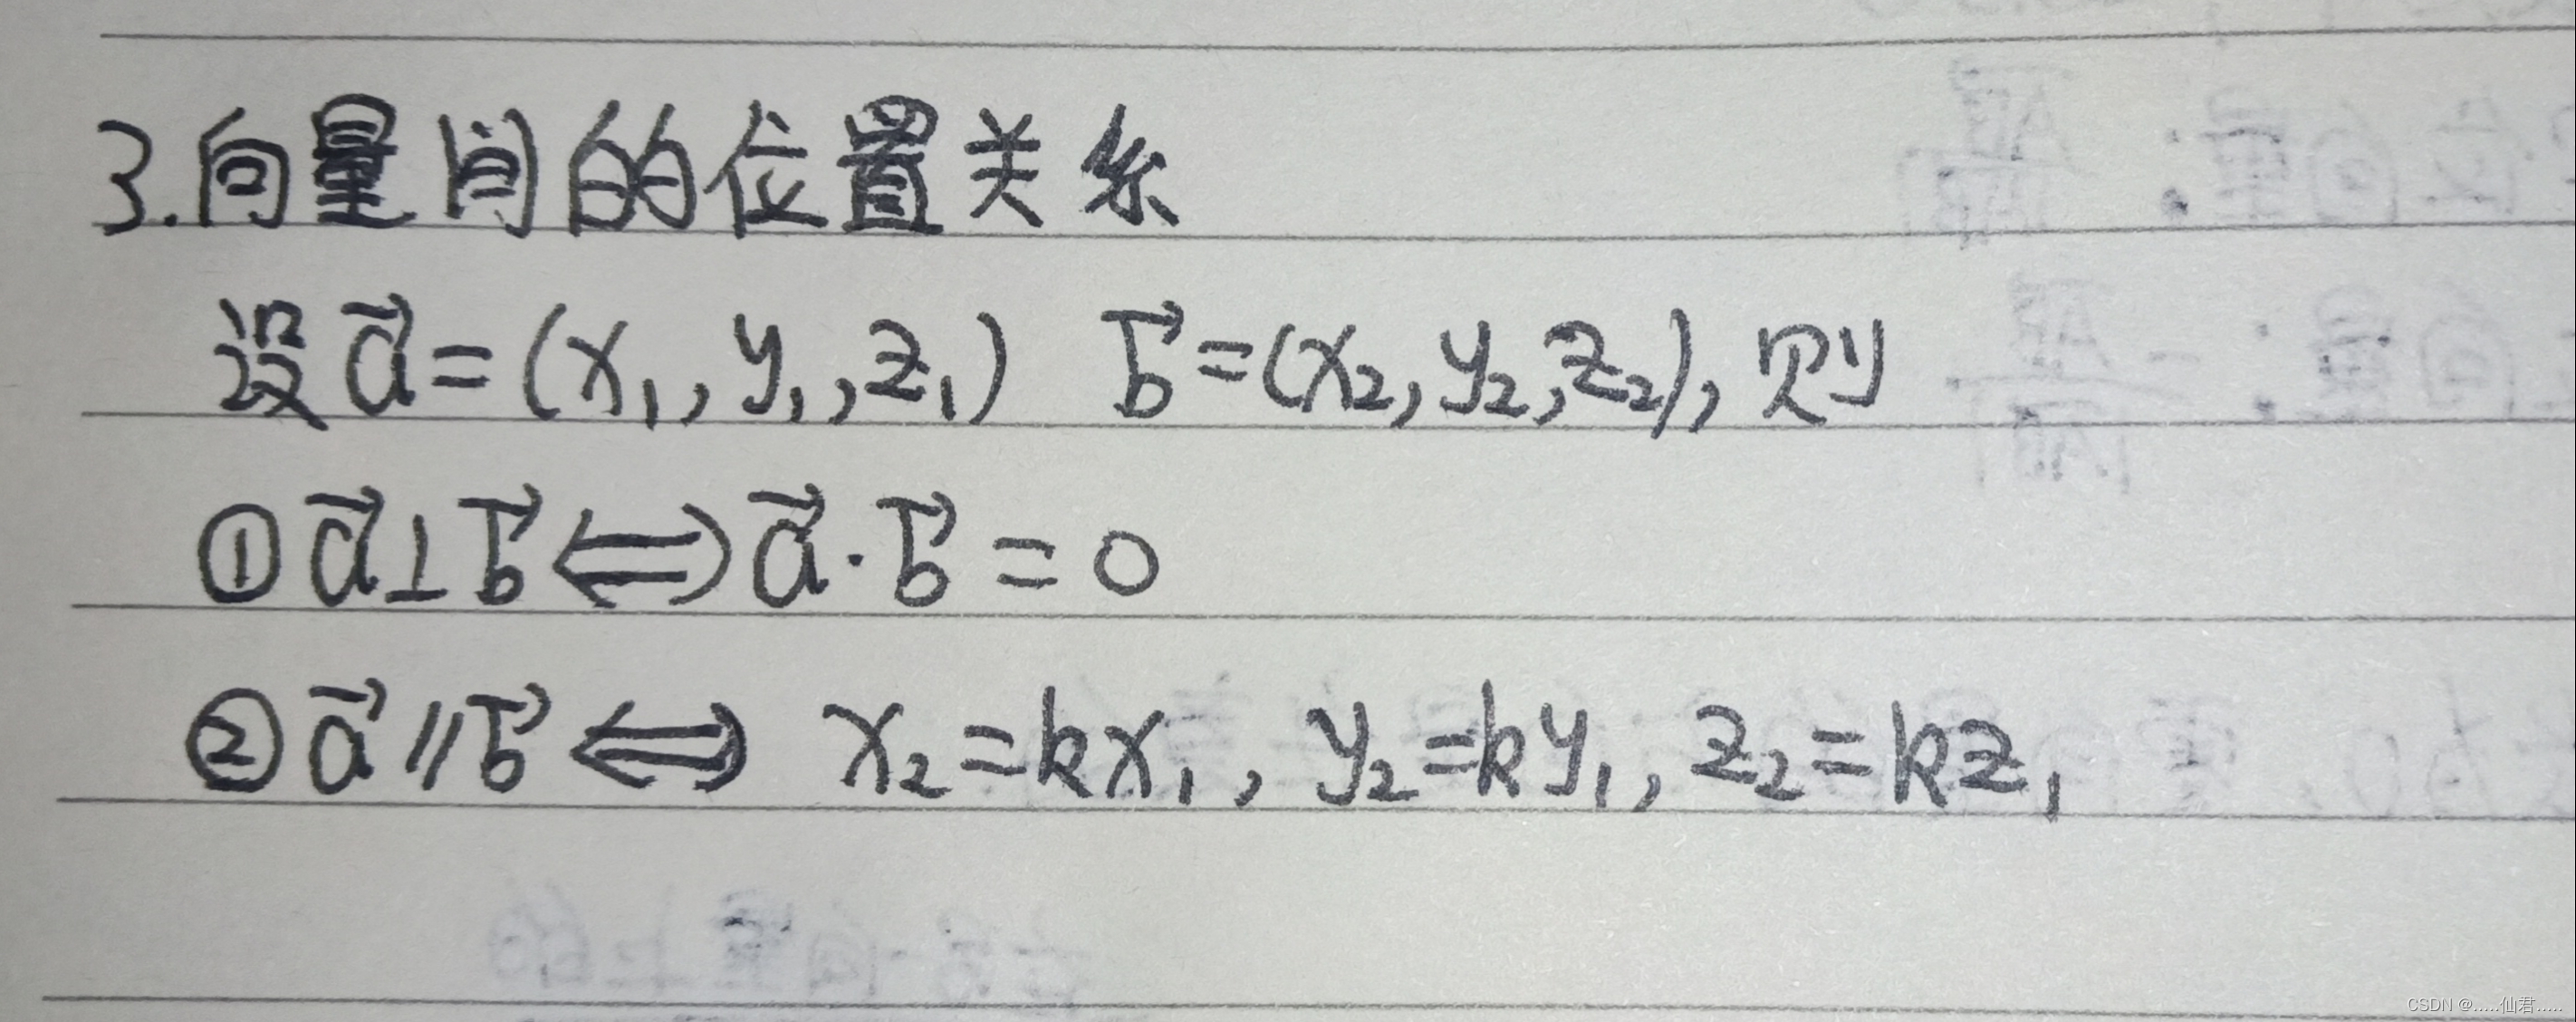 3.向量间的位置关系
设 a⃗=(x₁,y₁,z₁) b⃗=(x₂,y₂,z₂),则
①a⃗⊥b⃗⇔a⃗·b⃗=0
②a⃗∥b⃗⇔ x₂=kx₁, y₂=ky₁, z₂=kz₁
CSDN @.....仙君.....